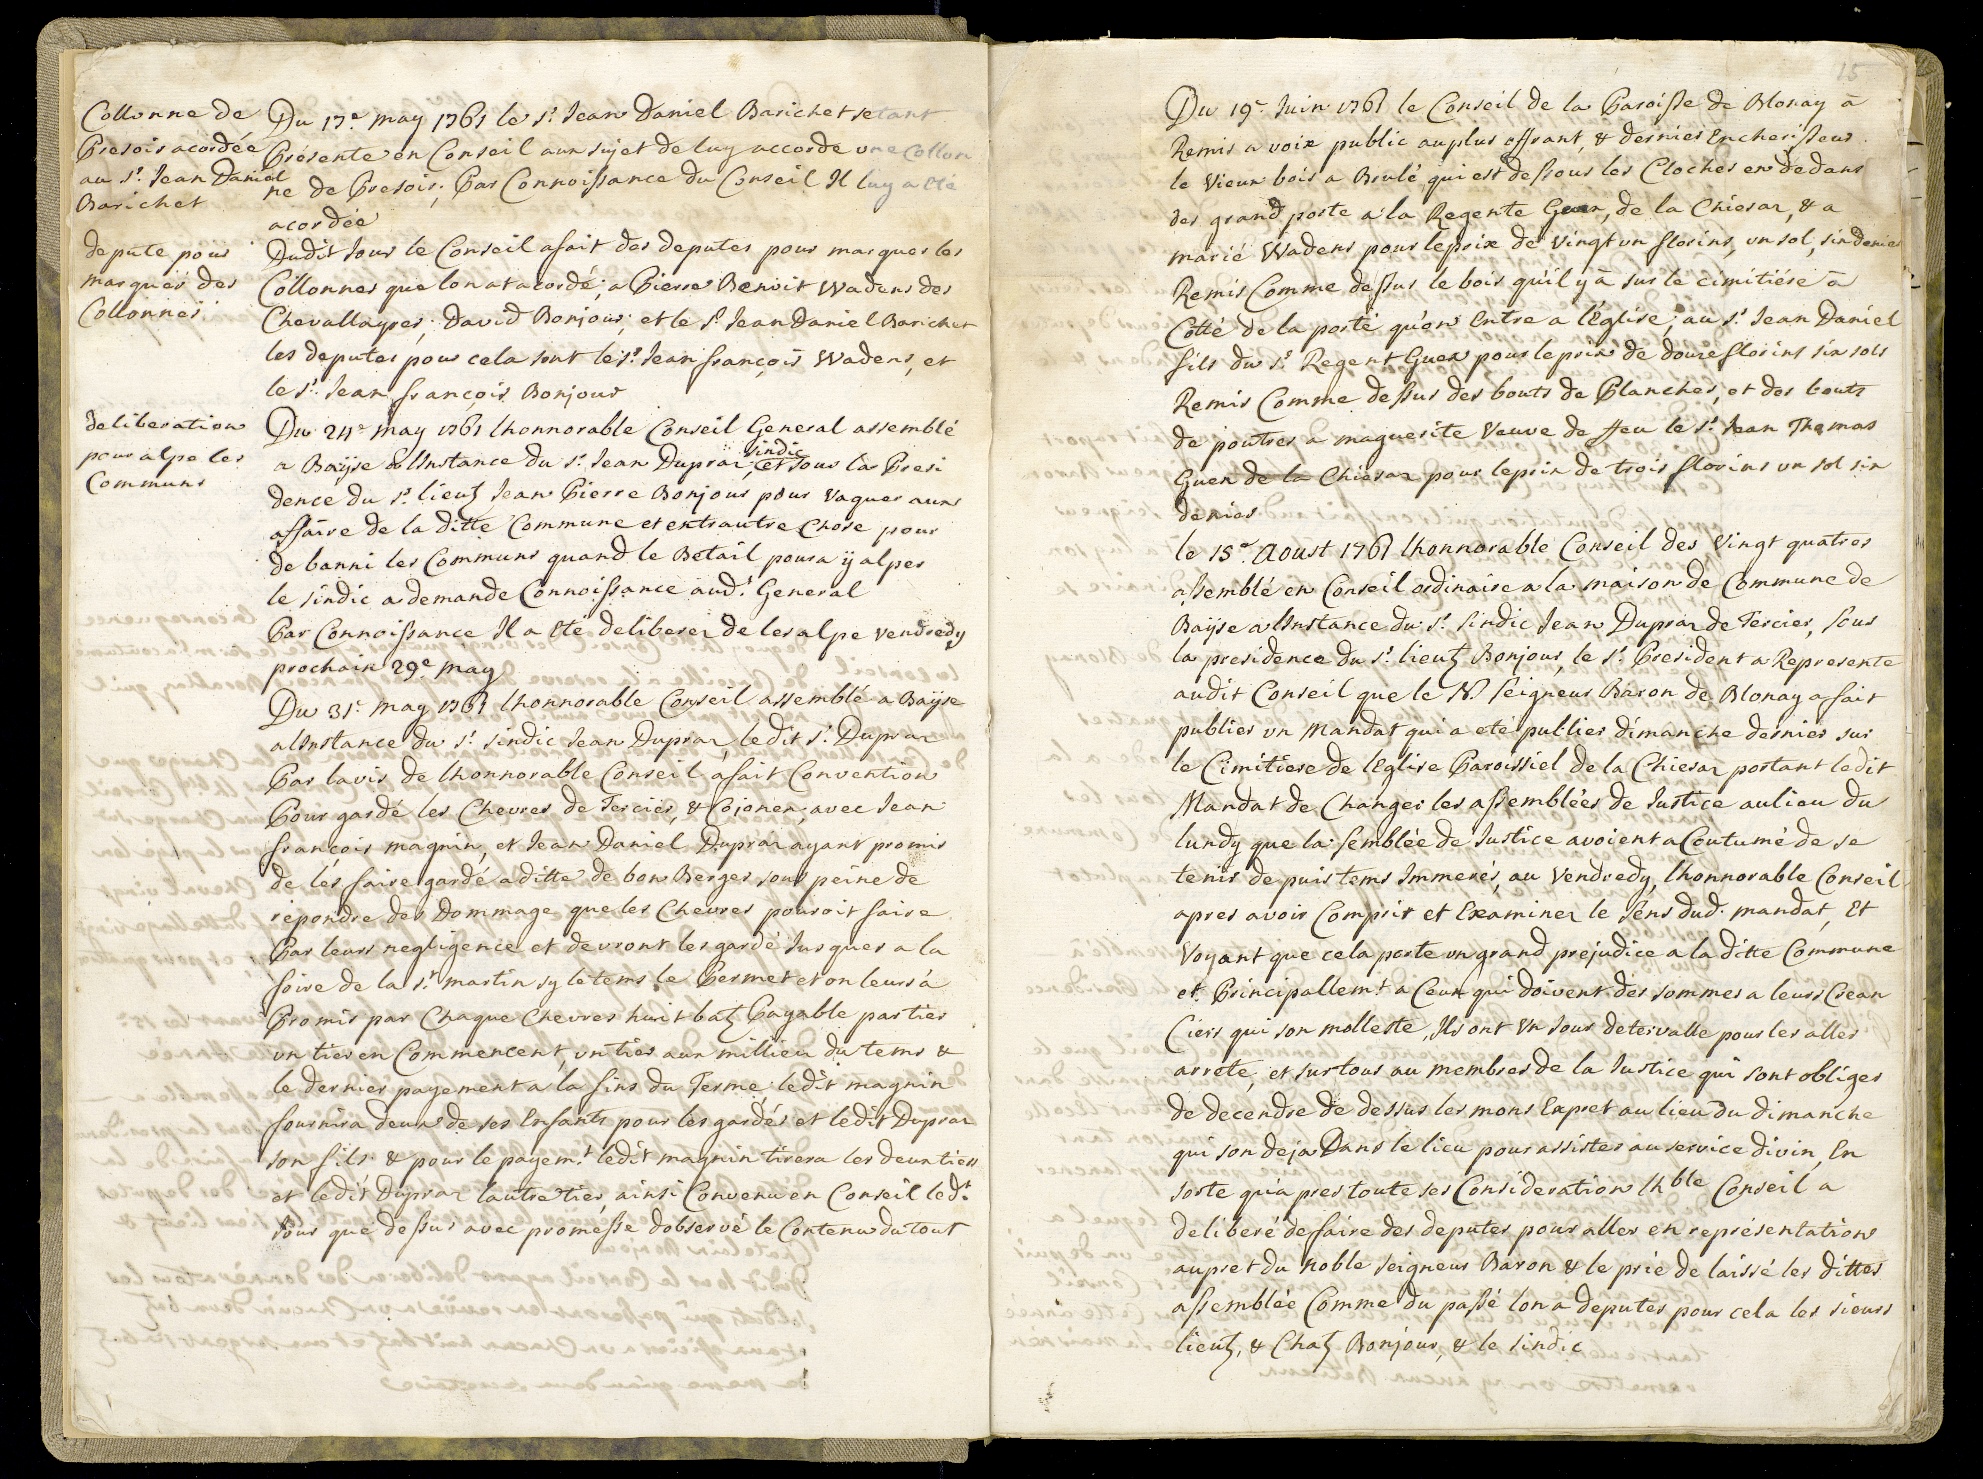 Collonne de
Presois acordée
au Sr. Jean Daniel
Barichet
Du 17e. may 1761 le Sr. Jean Daniel Barichet setant
Présente en Conseil aux sujet de luy accorde une Collon
ne de Presois; Par Connoissance du Conseil Il luy a été
acordée
depute pour
marquer des
Collonnes
Dudit Jour le Conseil afait des deputes pour marquer les
Collonnes que lon at acordé, a Pierre Benoit Wadens des
Chevallayres, David Bonjour, et le Sr Jean Daniel Barichet
les deputes pour cela sont le Sr. Jean françois Wadens, et
le Sr. Jean françois Bonjour
deliberation
pour alpe les
Communs
Du 24e may 1761 lhonnorable Conseil General assemblé
a Baÿse a lInstance du Sr. Jean Duprar, sindic et sous la Presi
dence du Sr. lieut Jean Pierre Bonjour pour Vaquer aux
affaire de la ditte Commune et extrautre Chose pour
de banni les Communs quand le Betail poura ÿ alper
le sindic a demande Connoissance aud.t General
Par Connoissance Il a été deliberer de les alpe vendredy
prochain 29e may
Du 31e. may 1761 lhonnorable Conseil assemblé a Baÿse
a lInstance du Sr. sindic Jean Duprar, ledit Sr. Duprar
Par lavis de lhonnorable Conseil afait Convention
Pour gardé les Chevres de Tercier, & Cojonex, avec Jean
françois magnin, et Jean Daniel Duprar ayant promis
de les faire gardé a ditte de bon Berger sous peine de
répondre des Dommage que les Chevres pouroit faire
Par leurs negligence et devront les gardé Jusques a la
foire de la St. martin sy le tems le Permet et on leurs à
Promis par Chaque Chevres huit batz Payable par tier
un tier en Commencent, un tier aux millieu du tems &
le dernier payement a la fins du Terme. ledit magnin
fournira deux de ses Enfants pour les gardés et ledit Duprar
son fils & pour le payemt. ledit magnin tirera les deux tiers
et ledit Duprar lautre tier, ainsi Convenu en Conseil led.t
Jour que dessus avec promesse dobservé le Contenu du tout
15
Du 19e. Juin 1761 le Conseil de la Paroisse de Blonay à
Remis a voix public au plus offrant, & dernier Encherisseur
le Vieux bois a Brulé, qui est dessous les Cloches en dedans
des grand porte a la Regente Guex, de la Chiesar, & a
marié Wadens pour le prix de Vingt un florins, un sol, six denier
Remis Comme dessus le bois qu'il y à sur le cimitiére à
Cotté de la porte qu'on Entre a l'Eglise, au Sr. Jean Daniel
fils du Sr. Regent Guex pour le prix de douze florins six sols
Remis Comme dessus des bouts de Planches, et des bouts
de poutres a maguerite Veuve de ffeu le Sr. Jean Thomas
Guex de la Chiesar pour leprix de trois florins un sol six
denier
le 15e. Aoust 1761 lhonnorable Conseil des Vingt quatres
assemblé en Conseil ordinaire a la maison de Commune de
Baÿse a lInstance du Sr. sindic Jean Duprar de Tercier, sous
la presidence du Sr. lieut Bonjour, le Sr. President a Represente
audit Conseil que le N. Seigneur Baron de Blonay afait
publier un Mandat qui a eté publier dimanche dernier sur
le Cimitiere de lEglise Paroissiel de la Chiesar portant ledit
Mandat de Changer les assemblées de Justice au lieu du
lundy que la semblée de Justice avoient a Coutumé de se
tenir depuis tems Immerés, au Vendredy, lhonnorable Conseil
apres avoir Comprit et Examiner le sens dud. mandat, Et
Voyant que cela porte un grand prejudice a la ditte Commune
et Principallemt. a Ceux qui doivent des sommes a leurs Crean
Ciers qui son molleste, Ils ont un Jour detervalle pour les aller
arrete, et surtous au membres de la Justice qui sont obliges
de decendre de dessus les mons Expret au lieu du dimanche
qui son deja Dans le lieu pour assister au service divin, En
sorte qu'a pres toute ses Consideration lhble Conseil a
deliberé de faire des deputes pour aller en représentation
aupret du noble seigneur Baron & le prié de laissé les dittes
assemblée Comme du passé lon a deputes pour cela les sieurs
lieut, & Chat Bonjour, & le sindic